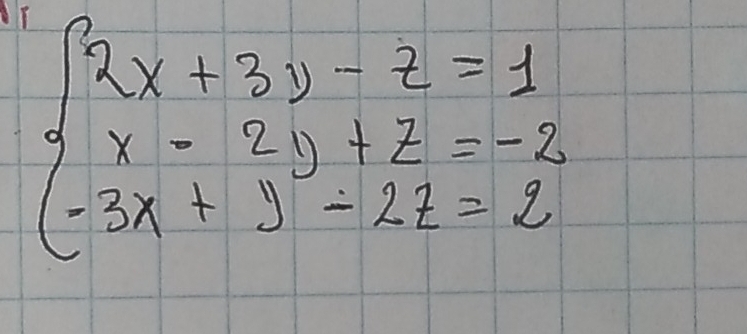 2x + 3y - z = 1
x - 2y + z = -2
-3x + y - 2z = 2